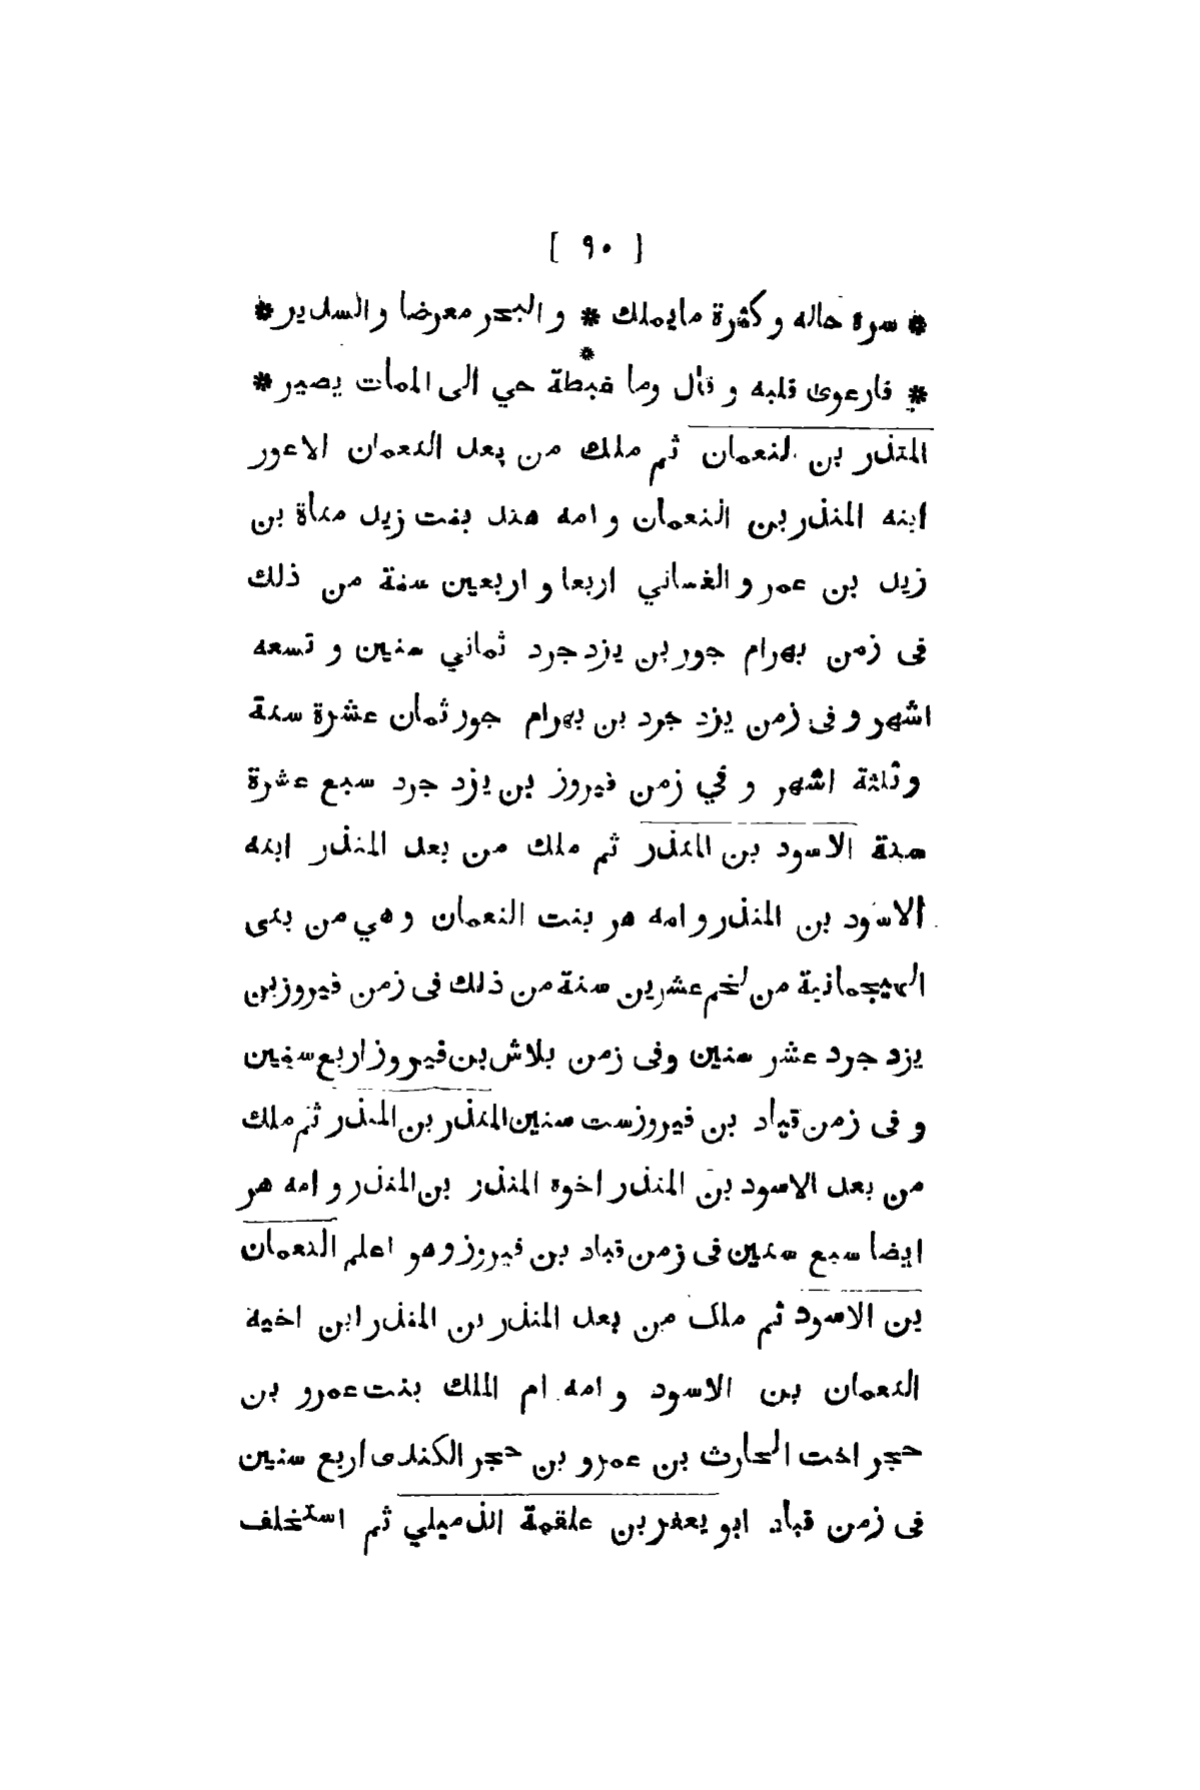 [ ٩٠ ]
* سره حاله و كثرة مايملك * و البحر معرضا و السدير *
*
* فارعوى قلبه و قال وما غبطة حي الى الممات يصير *
المنذر بن النعمان ثم ملك من بعد النعمان الاعور
ابنه المنذر بن النعمان و امه هند بنت زيد مناة بن
زيد بن عمر و الغساني اربعا و اربعين سنة من ذلك
فى زمن بهرام جور بن يزد جرد ثماني سنين و تسعه
اشهر و فى زمن يزد جرد بن بهرام جور ثمان عشرة سنة
و ثلثة اشهر و في زمن فيروز بن يزد جرد سبع عشرة
سنة الاسود بن المنذر ثم ملك من بعد المنذر ابنه
الاسود بن المنذر و امه هر بنت النعمان و هي من بنى
الهيجمانة من لخم عشرين سنة من ذلك فى زمن فيروز بن
يزد جرد عشر سنين وفى زمن بلاش بن فيروز اربع سنين
و فى زمن قباد بن فيروز ست سنين المنذر بن المنذر ثم ملك
من بعد الاسود بن المنذر اخوه المنذر بن المنذر و امه هر
ايضا سبع سنين فى زمن قباد بن فيروز و هو اعلم النعمان
بن الاسود ثم ملك من بعد المنذر بن المنذر ابن اخيه
النعمان بن الاسود و امه ام الملك بنت عمرو بن
حجر اخت الحارث بن عمرو بن حجر الكندى اربع سنين
فى زمن قباد ابو يعفر بن علقمة الذميلي ثم استخلف